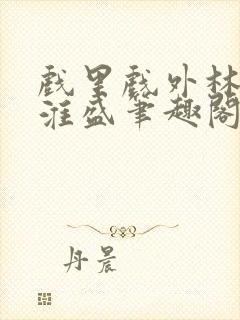 戲里戲外林
淮盛筆趣閣
丹晨